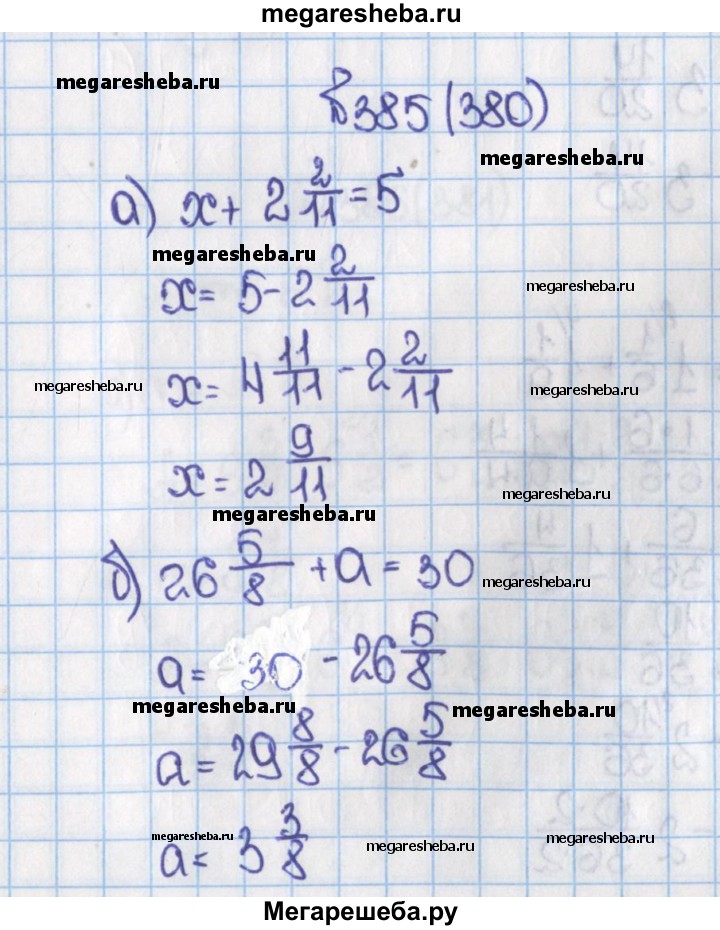 megaresheba.ru
megaresheba.ru
385 (380)
megaresheba.ru
а) x + 2 2/11 = 5
megaresheba.ru
x = 5 - 2 2/11
megaresheba.ru
x = 4 11/11 - 2 2/11
megaresheba.ru
megaresheba.ru
x = 2 9/11
megaresheba.ru
megaresheba.ru
б) 26 5/8 + a = 30
megaresheba.ru
a = 30 - 26 5/8
megaresheba.ru
megaresheba.ru
a = 29 8/8 - 26 5/8
a = 3 3/8
megaresheba.ru
megaresheba.ru
megaresheba.ru
Мегарешеба.ру